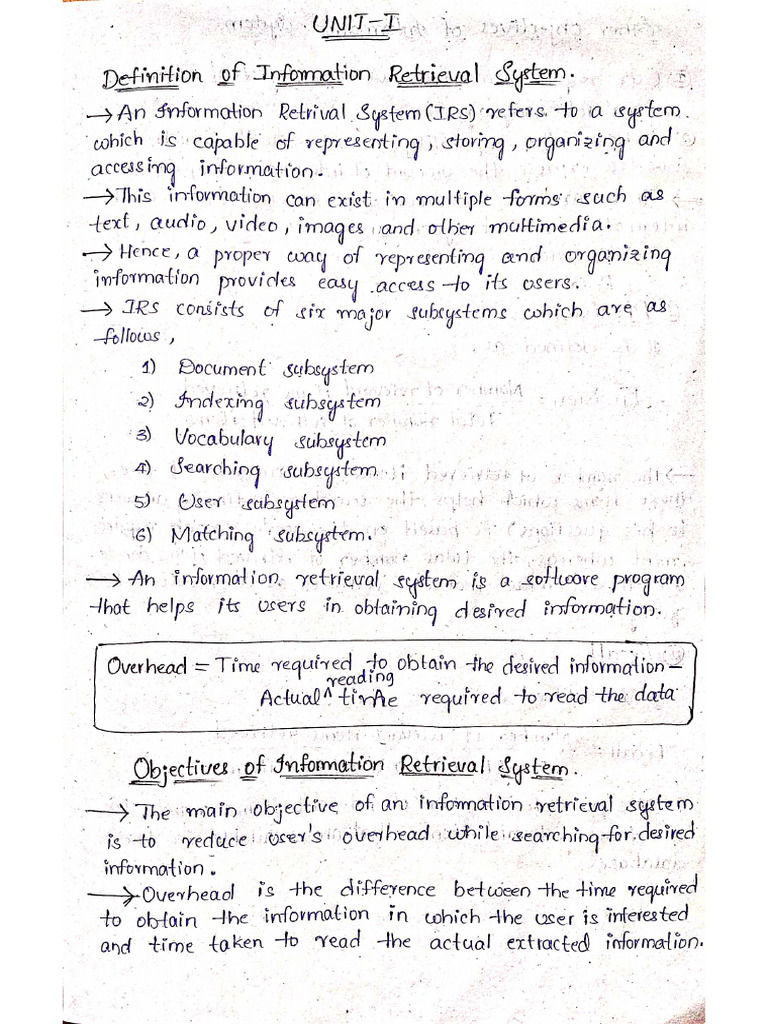 UNIT-I
Definition of Information Retrieval System.
→ An Information Retrival System (IRS) refers to a system
which is capable of representing, storing, organizing and
accessing information.
→ This information can exist in multiple forms such as
text, audio, video, images and other multimedia.
→ Hence, a proper way of representing and organizing
information provides easy access to its users.
→ IRS consists of six major subsystems which are as
follows,
1) Document subsystem
2) Indexing subsystem
3) Vocabulary subsystem
4) Searching subsystem
5) User subsystem
6) Matching subsystem.
→ An information retrieval system is a software program
that helps its users in obtaining desired information.
Overhead = Time required to obtain the desired information –
reading
Actual ^ time required to read the data
Objectives of Information Retrieval System.
→ The main objective of an information retrieval system
is to reduce user's overhead while searching for desired
information.
→ Overhead is the difference between the time required
to obtain the information in which the user is interested
and time taken to read the actual extracted information.